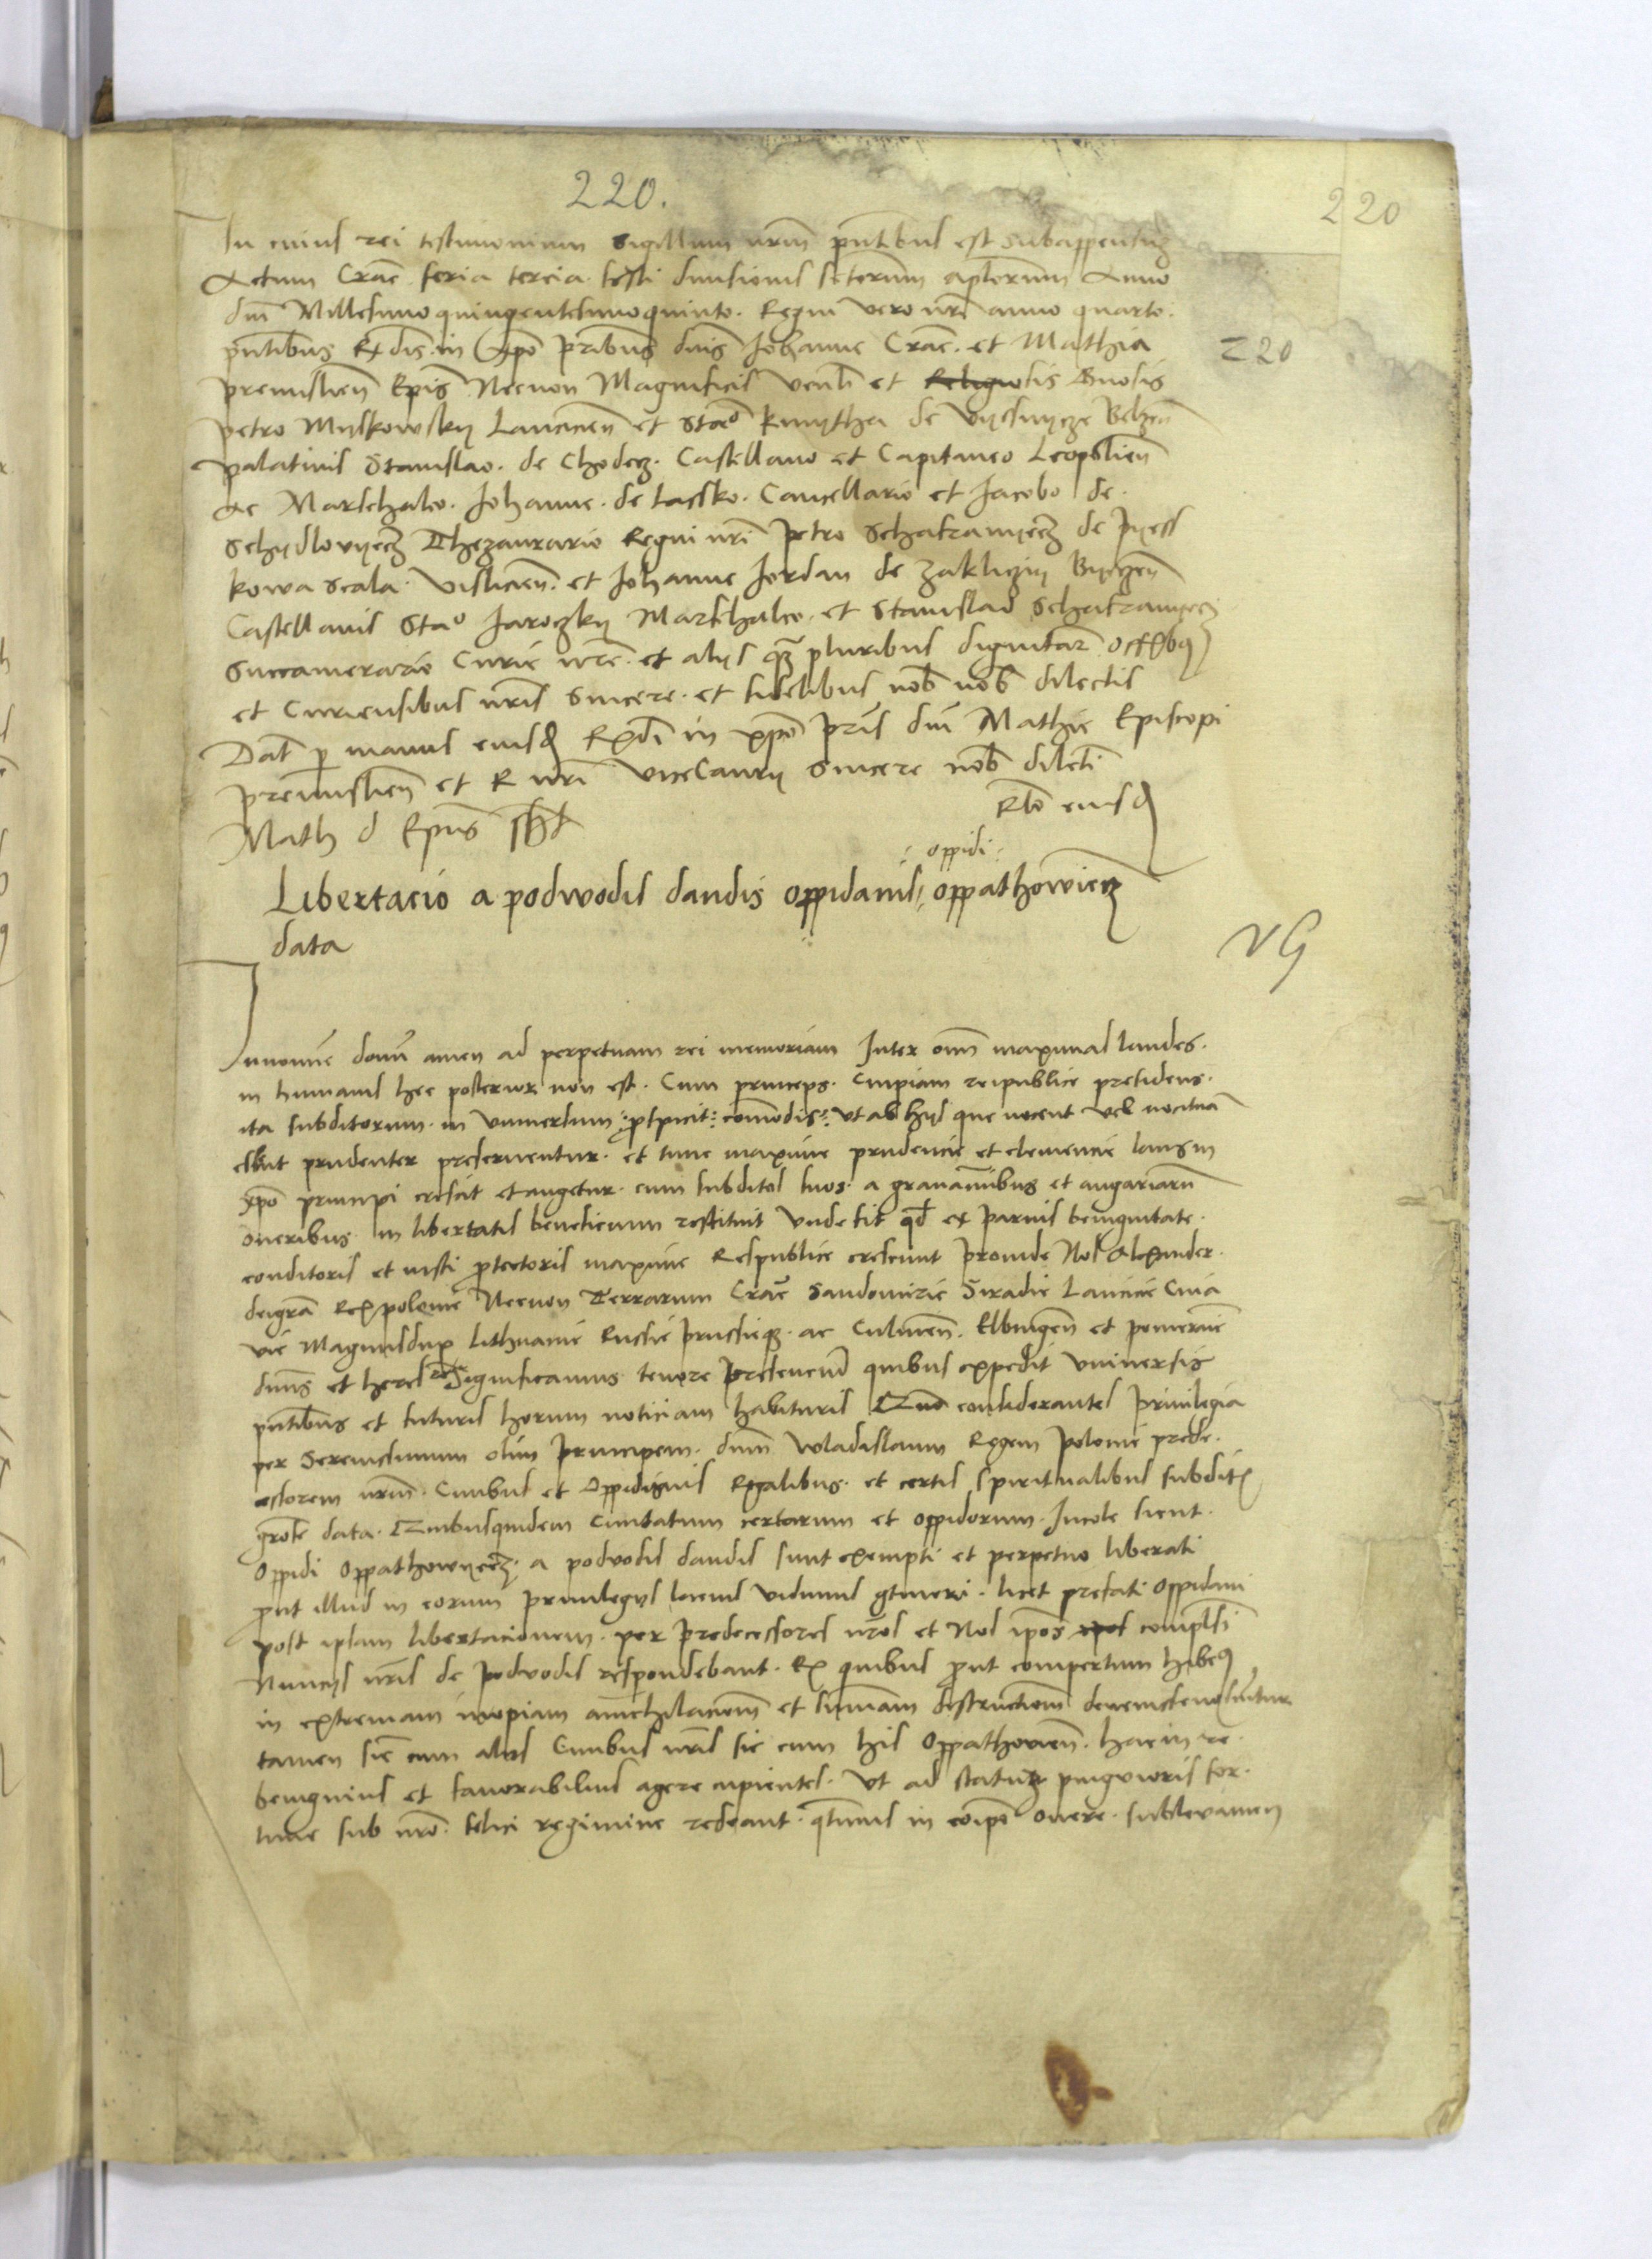 220.
220
In cuius rei testimonium Sigillum nrm pntibus est Subappensuz
Actum Crac feria tercia festi diuisionis sctorum aplorum Anno
dni Millesimoquingentesimoquinto. Regni vero nri anno quarto.
pntibus Rdis in Xpo pribus dnis Johanne Crac. et Mathia
220
premislien Epis Necnon Magnificis venli et Religiosis Gnosis
petro Myskowsky Lancicien et Stao kmytha de vysnycze Belzen
palatinis Stanislao. de Chodecz. Castellano et Capitaneo Leopolien
ac Marschalco. Johanne. de Lassko. Cancellario et Jacobo de.
Schydlovyecz Thezaurario Regni nri petro Schafranyecz de pyess
kowa scala. vislicien. et Johanne Jordan de zakliczin Byeczen
Castellanis Stao Jaroczky Marschalco. et Stanislao Schafranyecz
Succamerario Curie nre. et alijs qz pluribus dignitar offbq
et Curiensibus nris Sincere. et fidelibus nob nob dilectis
Dat p manus eiusd Rdi in xpo pris dni Mathie Episcopi
premislien et R nri ViceCanrij Sincere nob dilcti
Rlo eiusd
Math d Epus sst
oppidi
Libertacio a podwodis dandis oppidanis oppathowiecz
data
VG
Innomine domi amen ad perpetuam rei memoriam Inter omn maximas laudes.
in humanis hec posterior non est. Cum princeps. cuipiam reipublice presidens.
ita subditorum. in vniuersum: pspicit: comodis: vt ab hijs que nocent vel nocitua
essent prudenter preseruentur. et tunc maxime prudencie et clemencie laus in
xpo principi crescit et augetur. cum subditos suos. a grauaminibus et angariarum
oneribus. in libertatis beneficium restituit Vnde fit qd ex paruis benignitate.
conditoris et iusti ptectoris maxime Respublice crescunt proinde Nos Alexander.
deigra Rex polonie Necnon Terrarum Crac Sandomirie Siradie Lancicie Cuia
vie Magnusdux lithuanie Russie prussieqz. ac Culmen. Elbingen et pomeranie
dnus et heres rc Significamus tenore presencium quibus expedit vniuersis
pntibus et futuris horum noticiam habituris Quo considerantes priuilegia
per Serenissimum olim principem. dnm wladislaum Regem polonie prede.
cessorem nrm. Ciuibus et Oppidanis Regalibus. et certis spiritualibus subditis
grose data. Quibusquidem ciuitatum certarum et oppidorum. Incole sicut.
Oppidi Oppathowyecz. a podvodis dandis sunt exempti et perpetuo liberati
put illud in eorum priuilegijs lacius vidimus gtineri. licet prefati Oppidani
post ipsam libertacionem. per predecessores nros et Nos ipos ipos compulsi
Nuncijs nris de podwodis respondebant. Ex quibus put compertum habeq
in extremam inopiam annichilacionem et sumam destructionem
tamen sic cum alijs Ciuibus nris sic cum his Oppathouien. hac in re.
benignius et fauorabilius agere cupientes. Vt ad statum pinguioris for.
tune sub nro. felici regimine redeant. qtinus in eoipo onere. subleuamen